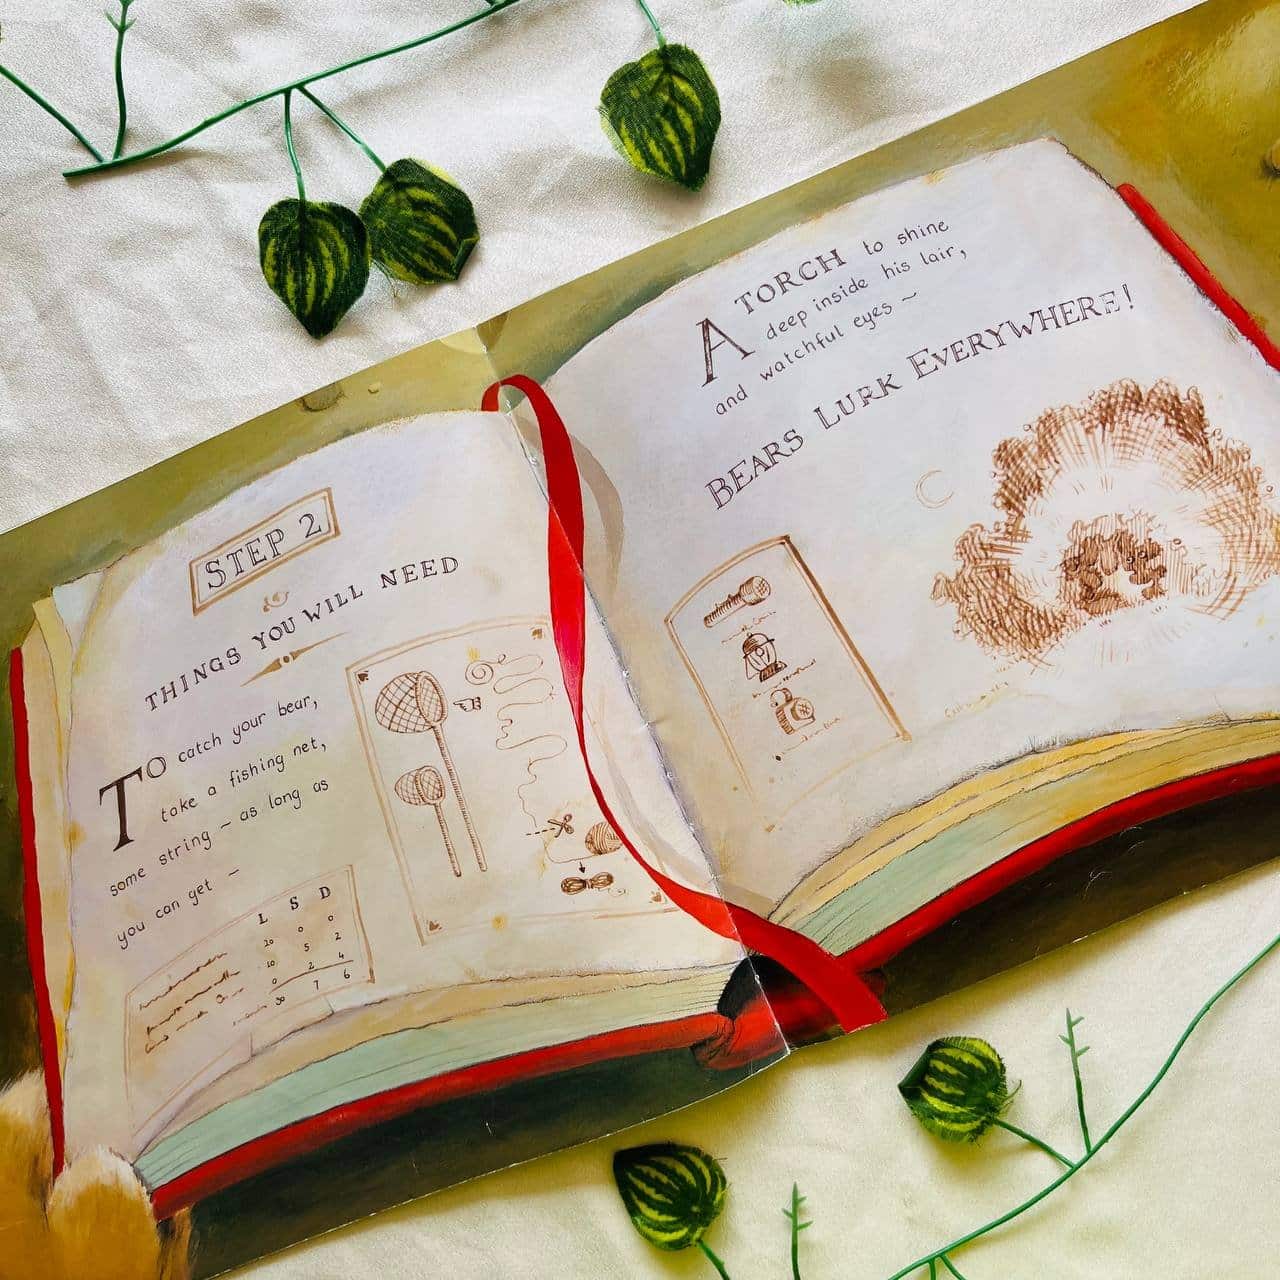 STEP 2
THINGS YOU WILL NEED
TO catch your bear,
take a fishing net,
some string ~ as long as
you can get ~
L S D
20 0 0
10 5 2
0 2 4
30 7 6
A TORCH to shine
deep inside his lair,
and watchful eyes ~
BEARS LURK EVERYWHERE!